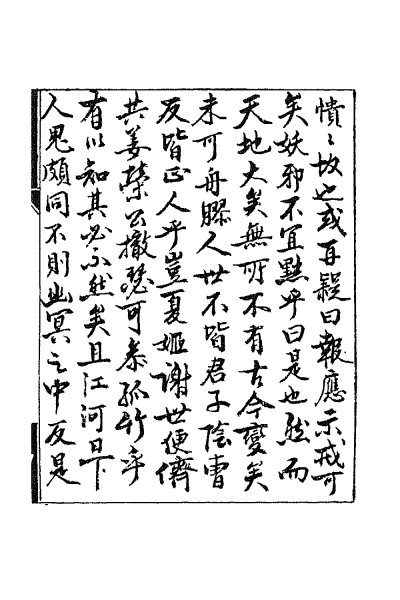 憒〻故也或再疑曰報應示戒可
矣妖邪不宜黜乎曰是也然而
天地大矣無所不有古今變矣
未可舟膠人世不皆君子陰曹
反皆正人乎豈夏姬謝世便儕
共姜榮公撤瑟可參孤竹乎
有以知其必不然矣且江河日下
人鬼頗同不則幽冥之中反是